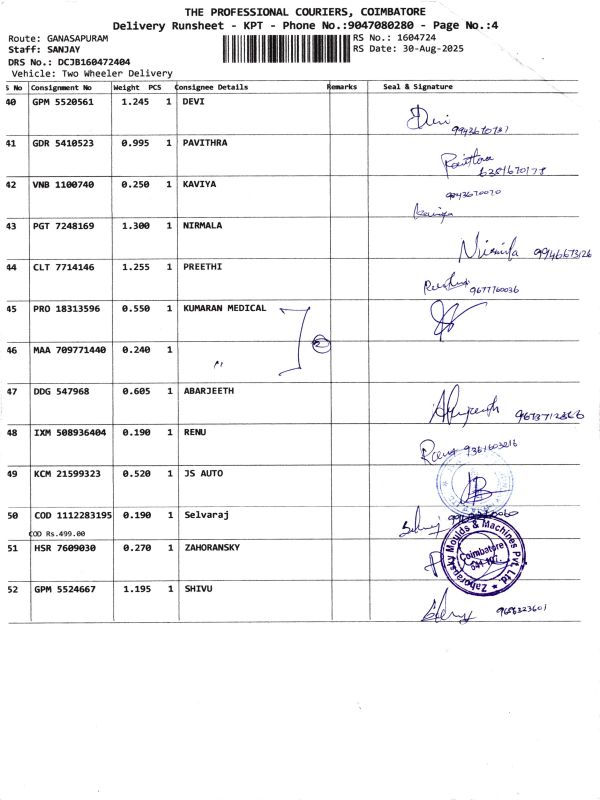 THE PROFESSIONAL COURIERS, COIMBATORE
Delivery Runsheet - KPT - Phone No.:9047080280 - Page No.:4
Route: GANASAPURAM
RS No.: 1604724
Staff: SANJAY
RS Date: 30-Aug-2025
DRS No.: DCJB160472404
Vehicle: Two Wheeler Delivery
S No Consignment No Weight PCS Consignee Details Remarks Seal & Signature
40 GPM 5520561 1.245 1 DEVI
Devi
41 GDR 5410523 0.995 1 PAVITHRA
Pavithra
6281670178
42 VNB 1100740 0.250 1 KAVIYA
9943670070
Kaviya
43 PGT 7248169 1.300 1 NIRMALA
Nirmala 9946673126
44 CLT 7714146 1.255 1 PREETHI
9677760036
45 PRO 18313596 0.550 1 KUMARAN MEDICAL
46 MAA 709771440 0.240 1
47 DDG 547968 0.605 1 ABARJEETH
48 IXM 508936404 0.190 1 RENU
Renu 9361603216
49 KCM 21599323 0.520 1 JS AUTO
50 COD 1112283195 0.190 1 Selvaraj
COD Rs.499.00
51 HSR 7609030 0.270 1 ZAHORANSKY
Zahoransky Moulds & Machines Pvt. Ltd.
Coimbatore
641 107.
52 GPM 5524667 1.195 1 SHIVU
9656323601